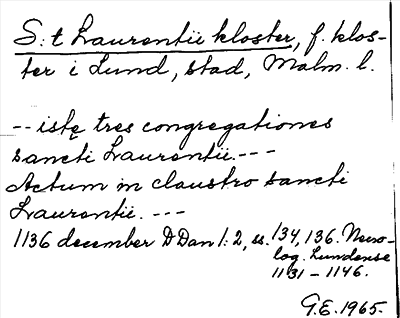 S:t Laurentii kloster, f. klos-
ter i Lund, stad, Malm. l.
-- istę tres congregationes
sancti Laurentii. ---
Actum in claustro sancti
Laurentii. ---
1136 december D Dan 1:2, ss. 134, 136. Necro-
log. Lundense
1131 - 1146.
G.E. 1965.